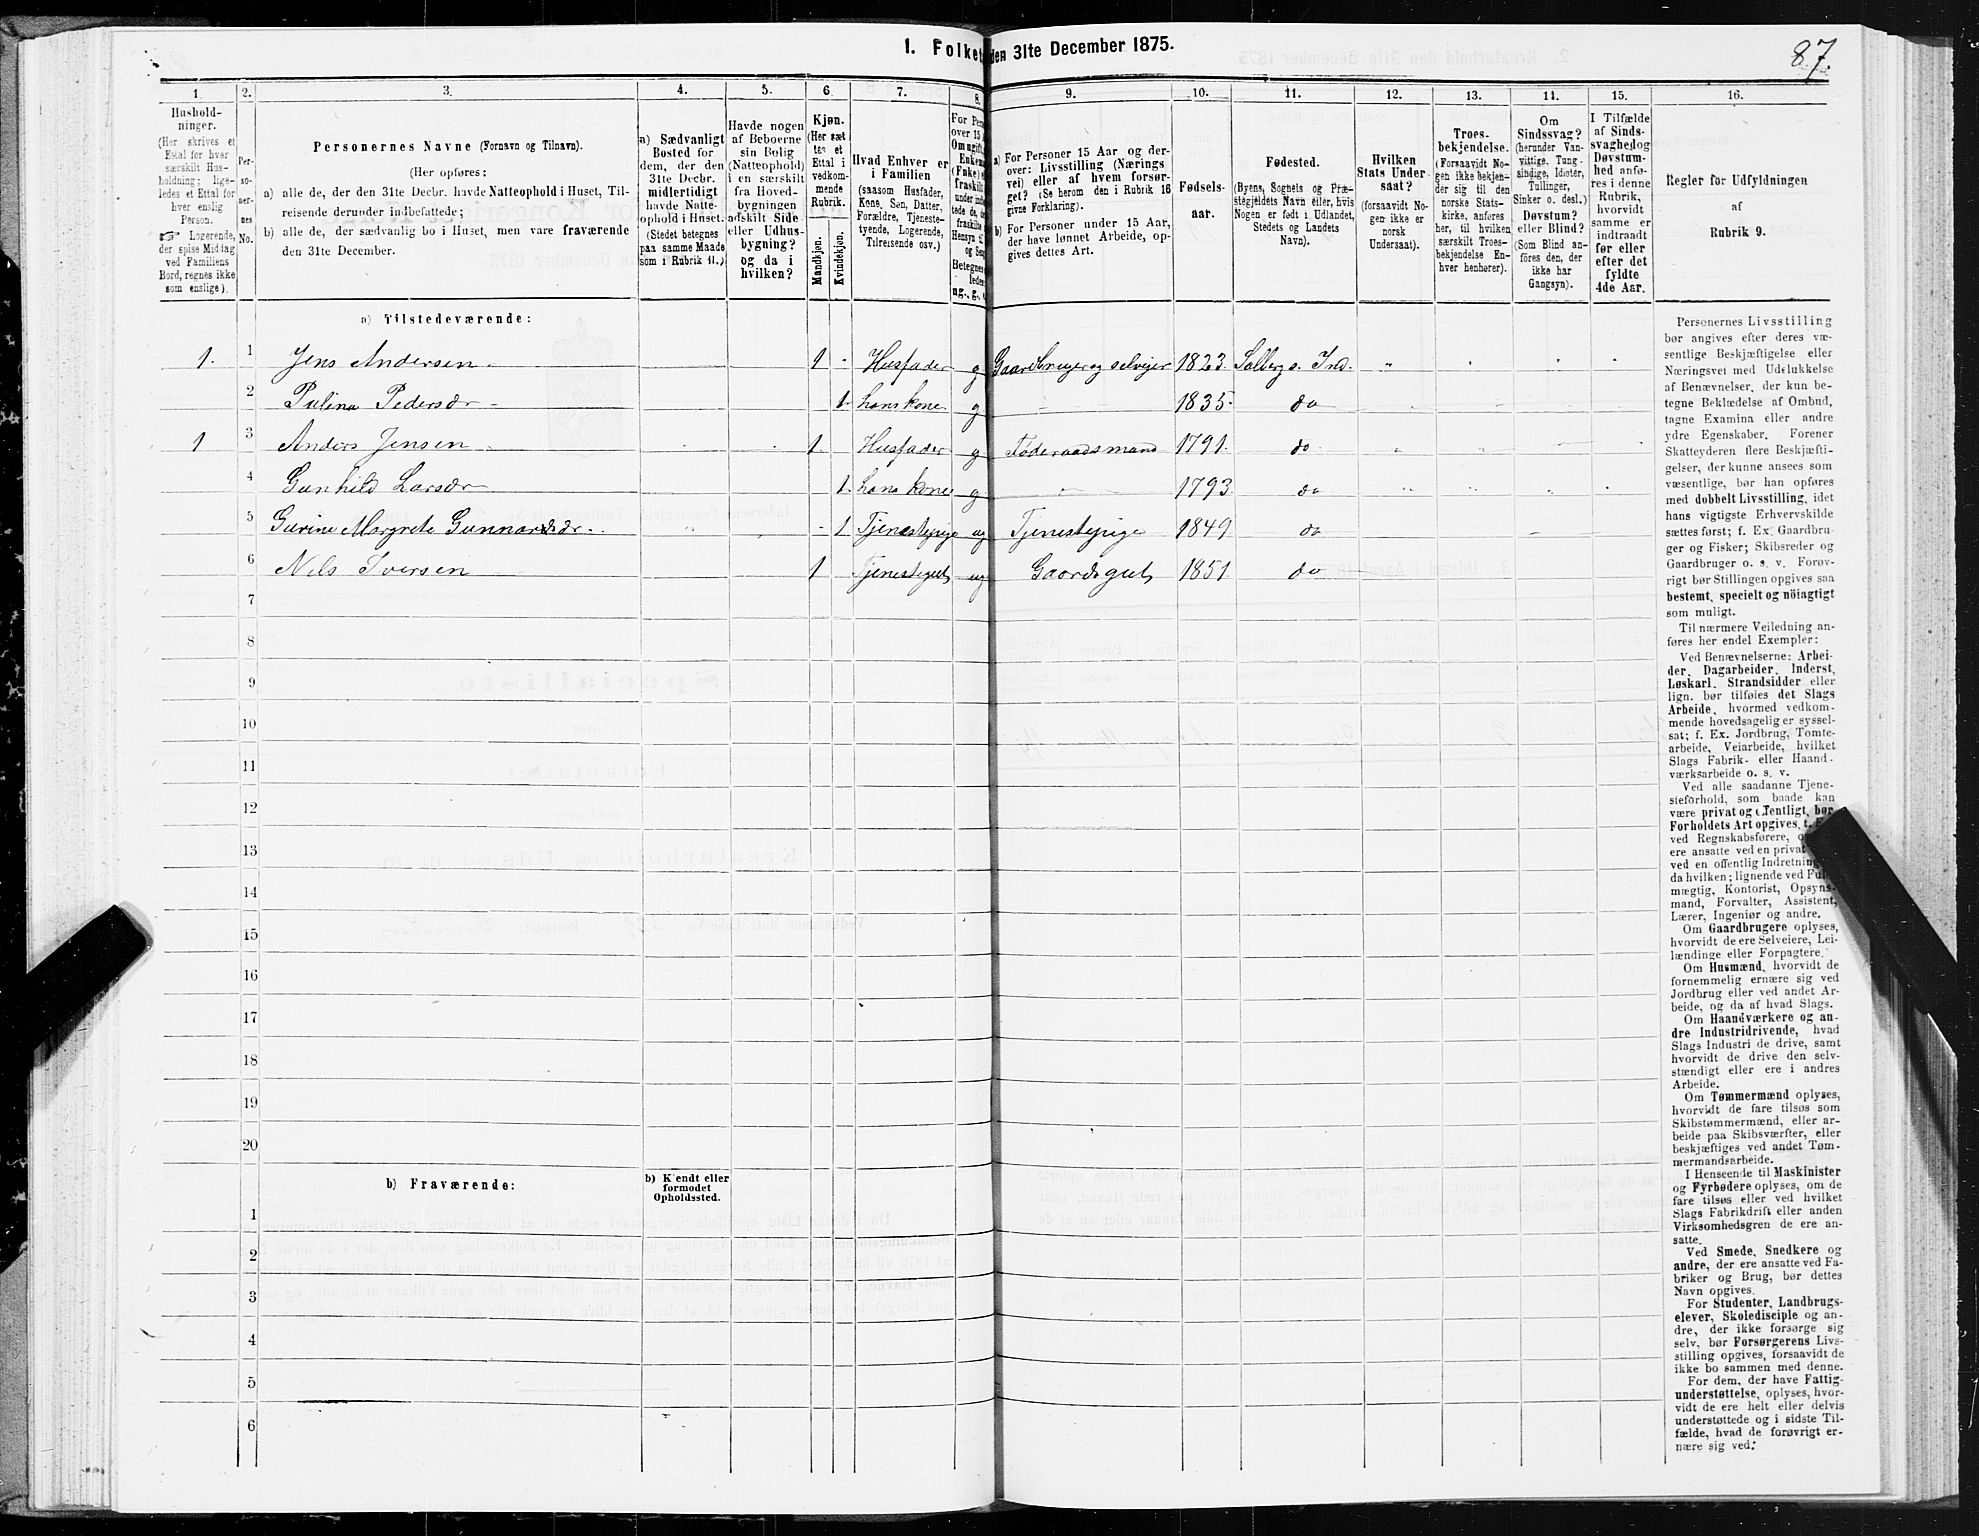 1. Folket den 31te December 1875.
87
1. 2. 3. 4. 5. 6. 7. 8. 9. 10. 11. 12. 13. 14. 15. 16.
Hushold-
ninger.
(Her skrives et
Ettal for hver
særskilt Hus-
holdning; lige-
ledes et Ettal for
hver enslig
Person.
☞ Logerende,
der spise Middag
ved Familiens
Bord, regnes ikke
som enslige).
Per-
so-
ner-
nes
No.
Personernes Navne (Fornavn og Tilnavn).
(Her opføres:
a) alle de, der den 31te Decbr. havde Natteophold i Huset, Til-
reisende derunder indbefattede;
b) alle de, der sædvanlig bo i Huset, men vare fraværende
den 31te December.
a) Sædvanligt
Bosted for
dem, der den
31te Decbr.
midlertidigt
havde Natte-
ophold i Huset.
(Stedet betegnes
paa samme Maade
som i Rubrik 11.)
Havde nogen
af Beboerne
sin Bolig
(Natteophold)
i en særskilt
fra Hoved-
bygningen
adskilt Side-
eller Udhus-
bygning?
og da i
hvilken?
Kjøn.
(Her sæt-
tes et
Ettal i
vedkom-
mende
Rubrik.
Mandkjøn.
Kvindekjøn.
Hvad Enhver er
i Familien
(saasom Husfader,
Kone, Søn, Datter,
Forældre, Tjeneste-
tyende, Logerende,
Tilreisende osv.)
For Pers
over 15 A
Om ugift,
Enkem
(Fnke) e
fraskilt
under ind
tede de, d
fraskilte
Hensyn ti
og Sen
Betegnes
leder
ug., g.,
a) For Personer 15 Aar og der-
over: Livsstilling (Nærings-
vei) eller af hvem forsør-
get? (Se herom den i Rubrik 16
givne Forklaring).
b) For Personer under 15 Aar,
der have lønnet Arbeide, op-
gives dettes Art.
Fødsels-
aar.
Fødested.
(Byens, Sognets og Præ-
stegjeldets Navn eller, hvis
Nogen er født i Udlandet,
Stedets og Landets
Navn).
Hvilken
Stats Under-
saat?
(forsaavidt No-
gen ikke er
norsk
Undersaat).
Troes-
bekjendelse.
(Forsaavidt No-
gen ikke bekjen-
der sig til den
norske Stats-
kirke, anføres
her, til hvilken
særskilt Troes-
bekjendelse En-
hver henhører).
Om
Sindssvag?
(herunder Van-
vittige, Tung-
sindige, Idioter,
Tullinger,
Sinker o. desl.)
Døvstum?
eller Blind?
(Som Blind an-
føres den, der
ikke har
Gangsyn).
I Tilfælde
af Sinds-
svaghed og
Døvstum-
hed anfø-
res i denne
Rubrik,
hvorvidt
samme er
indtraadt
før eller
efter det
fyldte
4de Aar.
Regler for Udfyldningen
af
Rubrik 9.
a) Tilstedeværende:
1. 1 Jens Andersen 1 Husfader g Gaardbruger og selveier 1823. Solbergs. Ind.
2 Pulina Pedersdr 1 hans kone g 1835. do
1 3 Anders Jensen 1. Husfader g Føderaadsmand 1791. do
4 Gunhild Larsdr 1. hans kone g 1793 do
5 Gurine Margrete Gunnarsdr 1 Tjenestepige ug Tjenestepige 1849 do
6 Nils Iversen 1 Tjenestegut ug Gaardsgut 1851 do
7
8
9
10
11
12
13
14
15
16
17
18
19
20
b) Fraværende:
b) Kjendt eller
formodet
Opholdssted.
1
2
3
4
5
6
Personernes Livsstilling
bør angives efter deres væ-
sentlige Beskjæftigelse eller
Næringsvei med Udelukkelse
af Benævnelser, der kun be-
tegne Beklædelse af Ombud,
tagne Examina eller andre
ydre Egenskaber. Forener
Skatteyderen flere Beskjæfti-
gelser, der kunne ansees som
væsentlige, bør han opføres
med dobbelt Livsstilling, idet
hans vigtigste Erhvervskilde
sættes først; f. Ex. Gaardbru-
ger og Fisker; Skibsreder og
Gaardbruger o. s. v. Forøv-
rigt bør Stillingen opgives saa
bestemt, specielt og nöiagtigt
som muligt.
Til nærmere Veiledning an-
føres her endel Exempler:
Ved Benævnelserne: Arbei-
der, Dagarbeider, Inderst,
Løskarl, Strandsidder eller
lign. bør tilføies det Slags
Arbeide, hvormed vedkom-
mende hovedsagelig er syssel-
sat; f. Ex. Jordbrug, Tomte-
arbeide, Veiarbeide, hvilket
Slags Fabrik- eller Haand-
værksarbeide o. s. v.
Ved alle saadanne Tjene-
steforhold, som baade kan
være privat og offentligt, bør
Forholdets Art opgives, t. E
ved Regnskabsførere, o
ere ansatte ved en privat
ved en offentlig Indretnin
da hvilken; lignende ved Fuld-
mægtig, Kontorist, Opsyns-
mand, Forvalter, Assistent,
Lærer, Ingeniør og andre.
Om Gaardbrugere oplyses,
hvorvidt de ere Selveiere, Lei-
lændinge eller Forpagtere.
Om Husmænd, hvorvidt de
fornemmelig ernære sig ved
Jordbrug eller ved andet Ar-
beide, og da af hvad Slags.
Om Haandværkere og an-
dre Industridrivende, hvad
Slags Industri de drive, samt
hvorvidt de drive den selv-
stændigt eller ere i andres
Arbeide.
Om Tømmermænd oplyses,
hvorvidt de fare tilsøs som
Skibstømmermænd, eller ar-
beide paa Skibsværfter, eller
beskjæftiges ved andet Tøm-
mermandsarbeide.
I Henseende til Maskinister
og Fyrbødere oplyses, om de
fare tilsøs eller ved hvilket
Slags Fabrikdrift eller anden
Virksomhedsgren de ere an-
satte.
Ved Smede, Snedkere og
andre, der ere ansatte ved Fa-
briker og Brug, bør dettes
Navn opgives.
For Studenter, Landbrugs-
elever, Skoledisciple og an-
dre, der ikke forsørge sig
selv, bør Forsørgerens Livs-
stilling opgives, forsaavidt de
ikke bo sammen med denne.
For dem, der have Fattig-
understøttelse, oplyses, hvor-
vidt de ere helt eller delvis
understøttede og i sidste Til-
fælde, hvad de forøvrigt er-
nære sig ved.